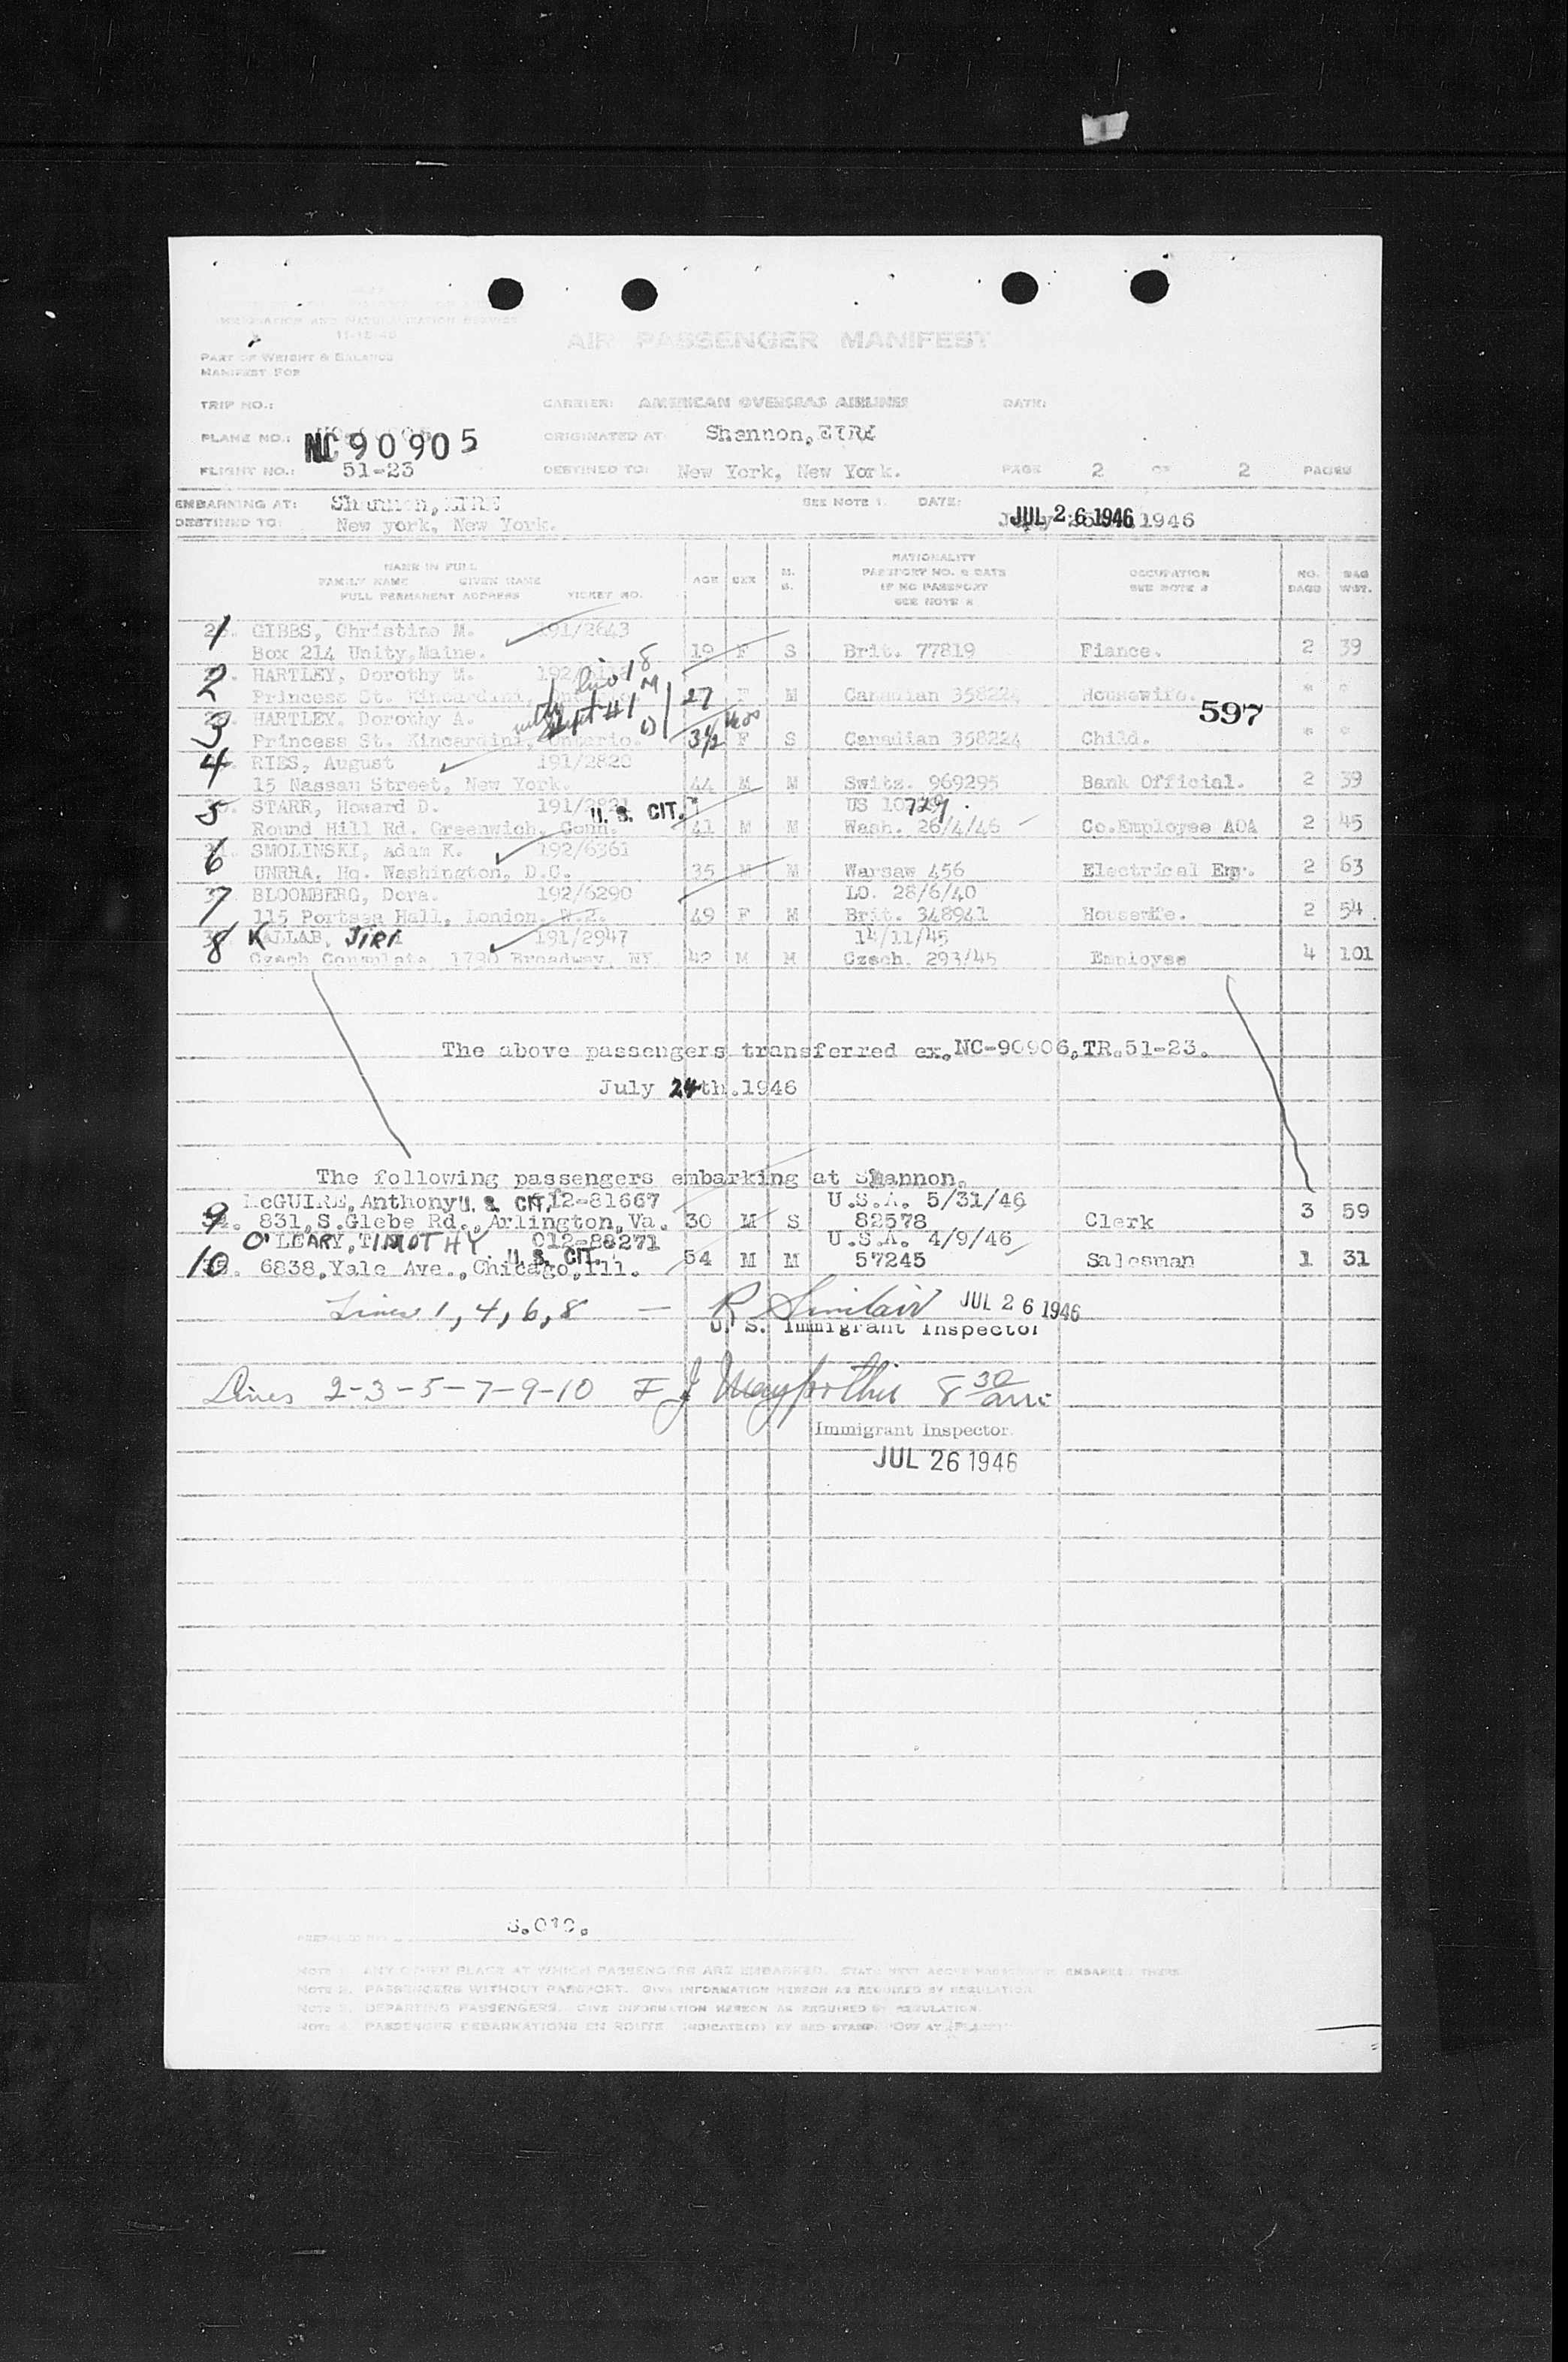 IMMIGRATION AND NATURALIZATION SERVICE
11-15-45
AIR PASSENGER MANIFEST
PART OF WEIGHT & BALANCE
MANIFEST FOR
TRIP NO.: CARRIER: AMERICAN OVERSEAS AIRLINES DATE:
PLANE NO.: NC90905 ORIGINATED AT Shannon, EIRE
FLIGHT NO.: 51-23 DESTINED TO: New York, New York. PAGE 2 OF 2 PAGES
EMBARKING AT: Shannon, EIRE SEE NOTE 1. DATE:
DESTINED TO: New york, New York. JUL 26 1946 1946
NAME IN FULL
FAMILY NAME GIVEN NAME
FULL PERMANENT ADDRESS TICKET NO. AGE SEX M. S. NATIONALITY PASSPORT NO. & DATE IF NO PASSPORT SEE NOTE 2 OCCUPATION SEE NOTE 3 NO. BAGS BAG WGT.
1 GIBBS, Christine M. 191/2643
Box 214 Unity, Maine. 19 F S Brit. 77819 Fiance. 2 39
2 HARTLEY, Dorothy M.
Princess St. Kincardini, Ontario. 27 F M Canadian 358224 Housewife. " "
597
3 HARTLEY. Dorothy A.
Princess St. Kincardini, Ontario. 3½ F S Canadian 358224 Child. " "
4 RIES, August 191/2820
15 Nassau Street, New York. 44 M M Switz. 969295 Bank Official. 2 39
5 STARR, Howard D. U. S. CIT.
Round Hill Rd. Greenwich, Conn. 41 M M Wash. 26/4/46 Co.Employee AOA 2 45
6 SMOLINSKI, Adam K. 192/6361
UNRRA, Hq. Washington, D.C. 35 M M Warsaw 456 Electrical Eng. 2 63
7 BLOOMBERG, Dora. 192/6290 LO. 28/6/40
115 Portsea Hall, London. W.2. 49 F M Brit. 348941 Housewife. 2 54
8 KALLAB, JIRI 191/2947 14/11/45
Czech Consulate, 1790 Broadway, NY 42 M M Czech. 293/45 Employee 4 101
The above passengers transferred ex. NC-90906, TR. 51-23.
July 24th. 1946
The following passengers embarking at Shannon.
9 McGUIRE, Anthony U. S. CIT. 012-81667 U.S.A. 5/31/46
831, S. Glebe Rd., Arlington, Va. 30 M S 82578 Clerk 3 59
10 O'LEARY, TIMOTHY 012-88271 U.S.A. 4/9/46
6838, Yale Ave., Chicago, Ill. U. S. CIT. 54 M M 57245 Salesman 1 31
Lines 1, 4, 6, 8 — R Sinclair JUL 26 1946
U. S. Immigrant Inspector
Lines 2-3-5-7-9-10 8 30 am
Immigrant Inspector
JUL 26 1946
PREPARED BY
NOTE 1. ANY OTHER PLACE AT WHICH PASSENGERS ARE EMBARKED.
NOTE 2. PASSENGERS WITHOUT PASSPORT. GIVE INFORMATION HEREON AS REQUIRED BY REGULATION.
NOTE 3. DEPARTING PASSENGERS. GIVE INFORMATION HEREON AS REQUIRED BY REGULATION.
NOTE 4. PASSENGER DEBARKATIONS EN ROUTE. INDICATE(D) BY RED STAMP: "OFF AT (PLACE)"